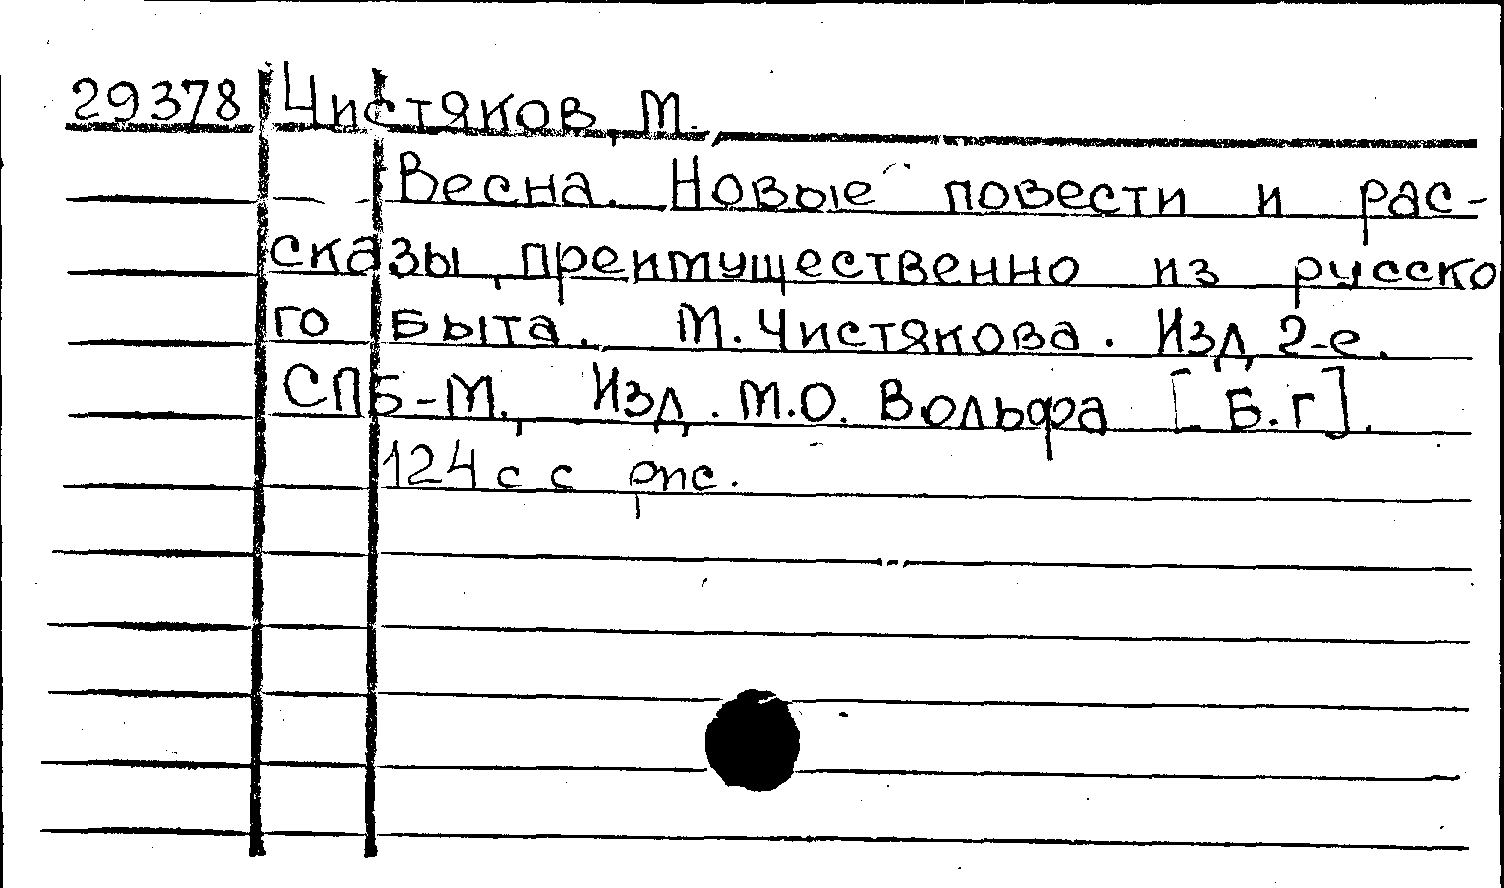 29378 Чистяков, М.
Весна. Новые повести и рас-
сказы, преимущественно из русско
го быта. М. Чистякова. Изд 2-е.
СПБ-М., Изд. М.О. Вольфа [Б.г].
124 с с рис.